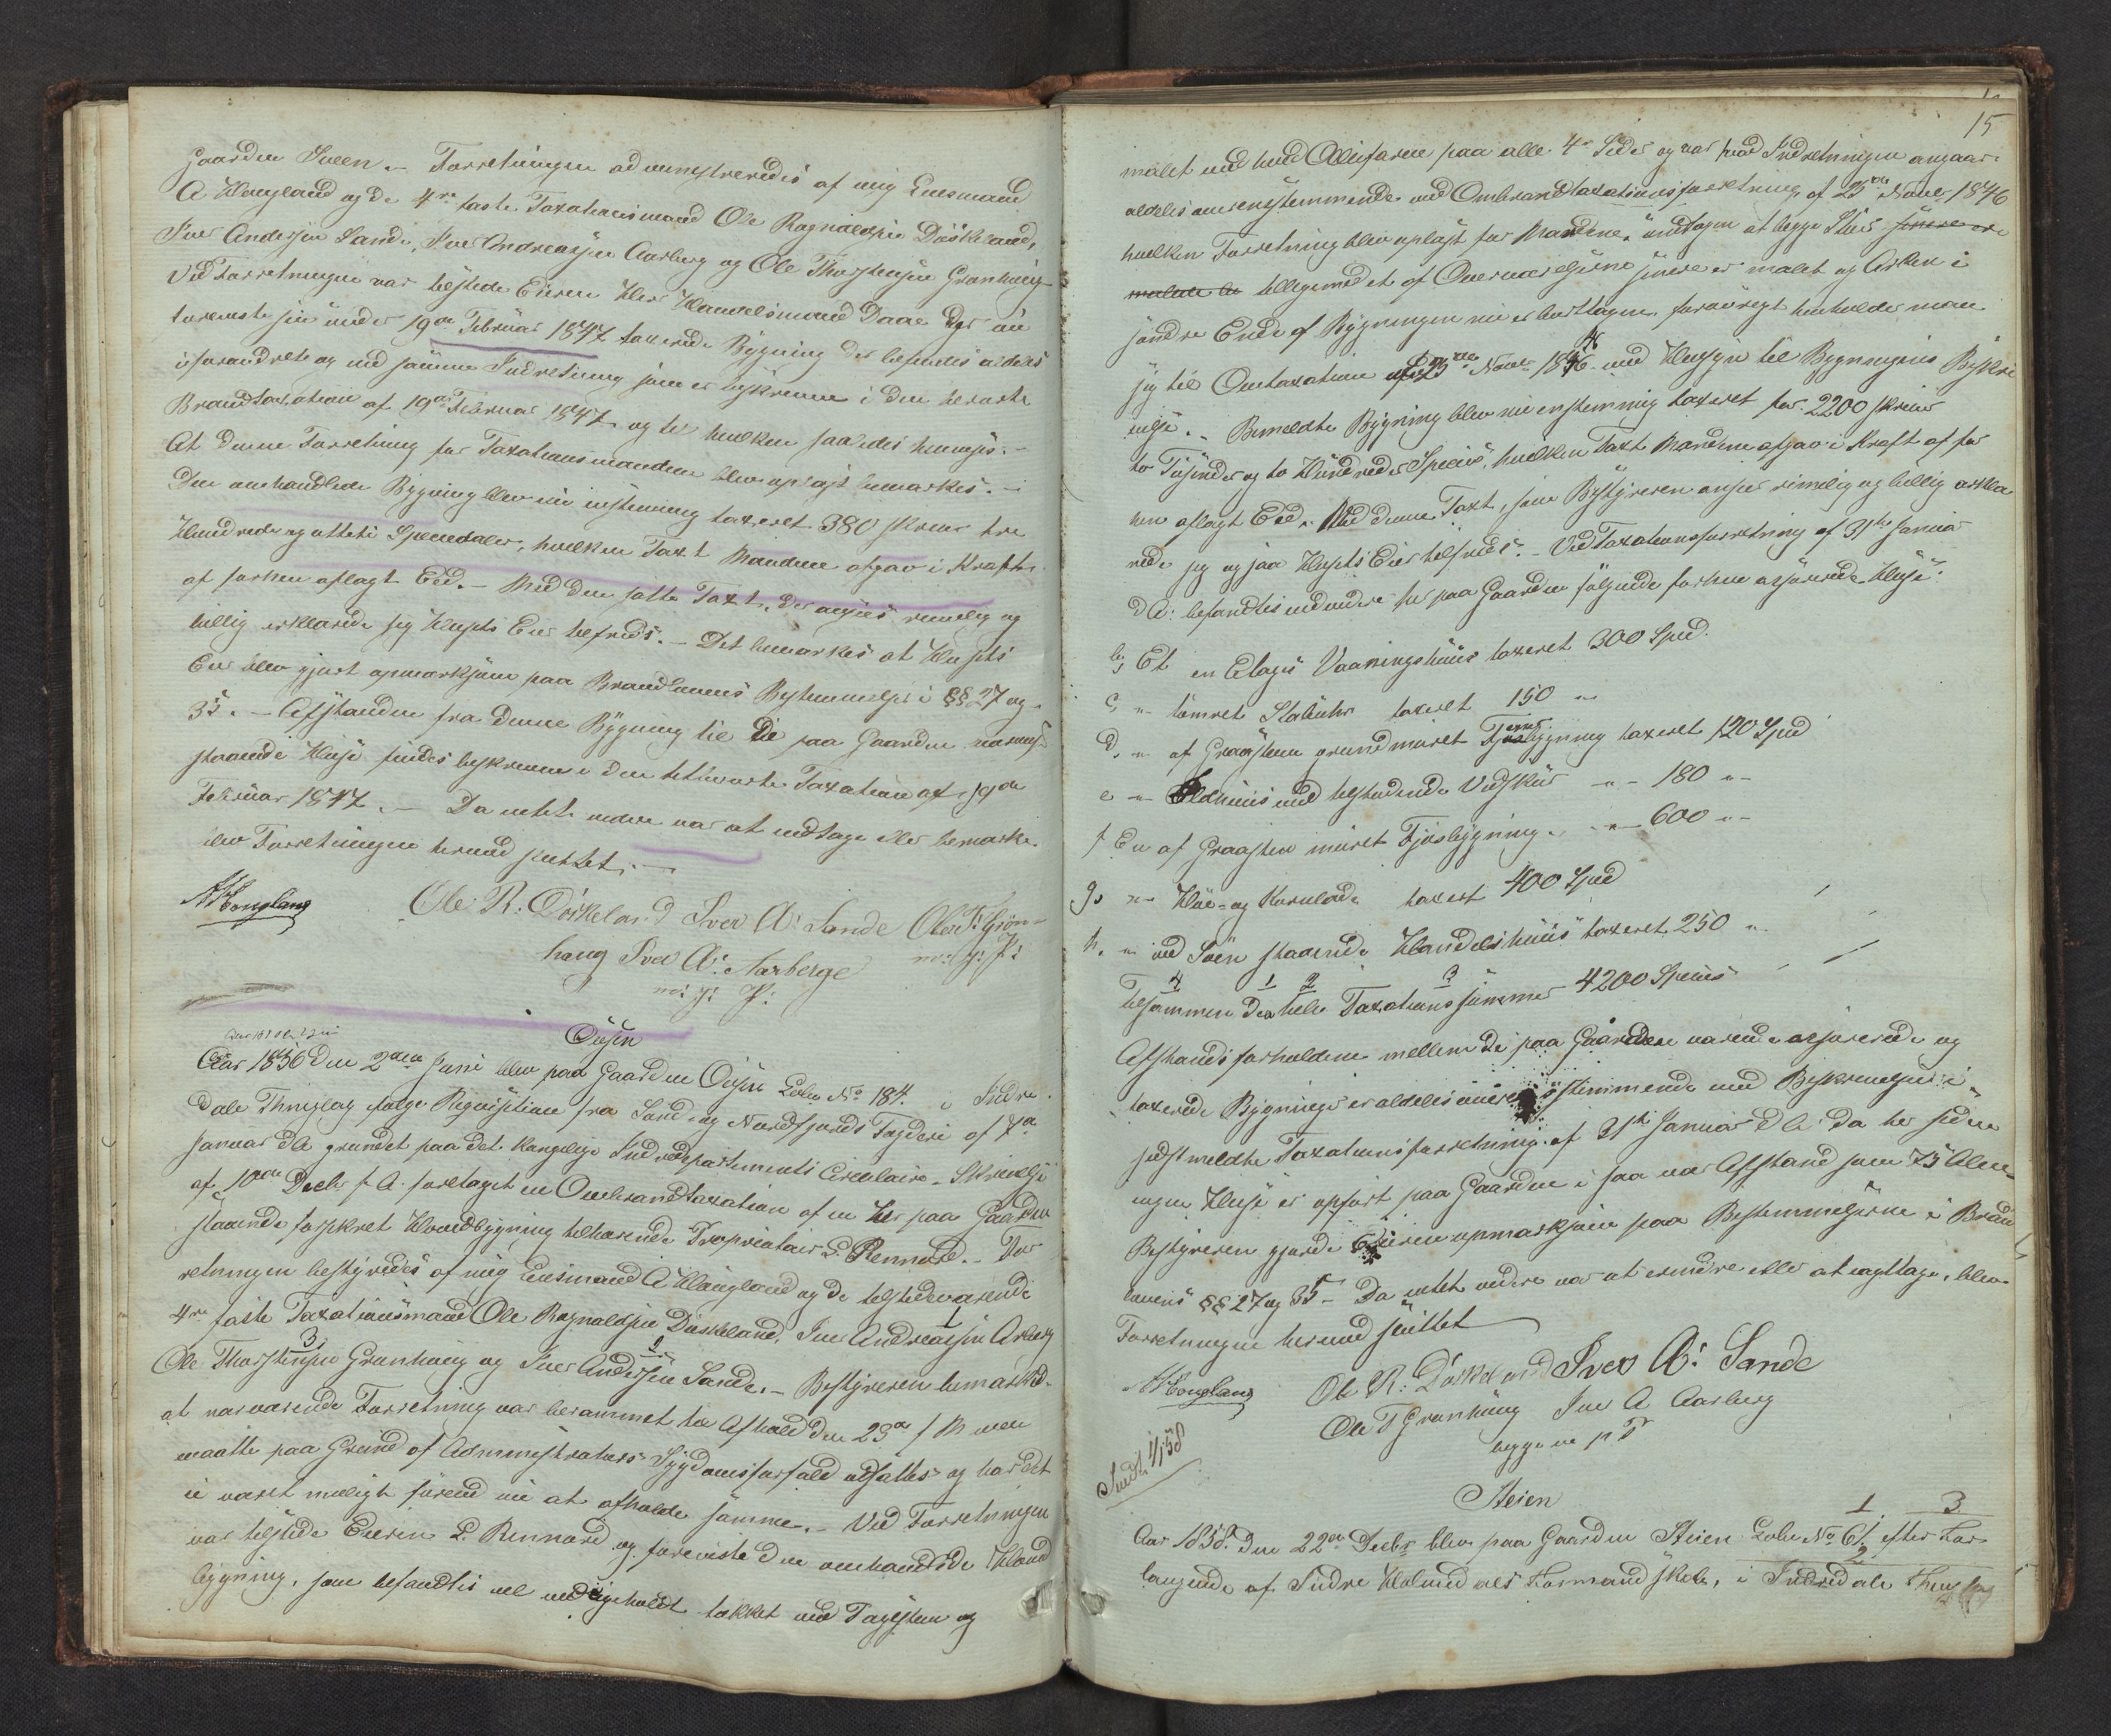 Gaarden Sveen. – Forretningen administreredes af mig Lensmand
A Hougland og de 4re faste Taxationsmænd Ole Ragnaldsen Døskeland,
Iver Andersen Sande, Iver Andreassen Aarberg og Ole Thorstensen Grønhaug
Ved Forretningen var tilstede Eieren Herr Handelsmand Daae der an
foreviste sin under 19de Februar 1847 taxerede Bygning der befandtes aldeles
uforandret og med samme Indretning som er beskreven i den berørte
Brandtaxation af 19de Februar 1847 og til hvilken saaledes henvises. –
At denne Forretning for Taxationsmændene blev oplæst bemærkes. –
Den omhandlede Bygning blev nu enstemmig taxeret 380 skriver tre
Hundrede og otteti Speciedaler, hvilken Taxt Mændene afgav i Kraft
af forhen aflagt Eed. – Med den satte Taxt, der ansees rimelig og
billig erklærede sig Husets Eier tilfreds. – Det bemærkes at Husets
Eier blev gjort opmærksom paa Brandlovens Bestemmelser i §§ 27 og
35. – Afstanden fra denne Bygning til de paa Gaarden værende
staaende Huse findes beskreven i den bemeldte Taxation af 19de
Februar 1847. – Da intet videre var at iagttage eller bemærke
blev Forretningen hermed sluttet. –
A Hougland
Ole R: Døskeland Iver A: Sande Ole T: Grøn-
haug Iver A: Aarberge m: f: P:
m: f: P:
Øiesen
Aar 1856 Den 2den Juni blev paa Gaarden Øien Løbe No 184 i Indre
dale Thinglag ifølge Reqvisition fra Sønd- og Nordfjords Fogderi af 7de
Januar d A grundet paa det kongelige Indredepartements Circulaire-Skrivelse
af 10de Decbr f. A. foretaget en Ombrandtaxation af en her paa Gaarden
staaende assikret Hovedbygning tilhørende Proprietair L. Rennord. – For
retningen bestyredes af mig Lensmand A Hougland og de tilstedeværende
4re faste Taxationsmænd Ole Ragnaldsen Døskeland, Iver Andreassen Arberg
Ole Thorstensen Grønhaug og Iver Andersen Sande. – Bestyreren bemærkede
at nærværende Forretning var berammet til Afhold den 29de f M men
maatte paa Grund af Administrators Sygdomsforfald udsættes og har det
ei været muligt førend nu at afholde samme. – Ved Forretningen
var tilstede Eieren L. Rennord og foreviste den omhandlede Hoved
bygning, som befandtes vel vedligeholdt tækket med Tagsteen og
15
malet med hvid Oliefarve paa alle 4re Sider og var hvad Indretningen angaar
aldeles overensstemmende med Ombrandtaxationsforretning af 25de Novbr 1846
hvilken Forretning blev oplæst for Mændene, undtagen at begge Stuer
tilligemed et af Overværelserne senere er malet og Arken i
søndre Ende af Bygningen nu er borttagen forøvrigt henholder man
sig til Omtaxation af 25de Novbr 1846 med Hensyn til Bygningens Beskri
velse. – Bemeldte Bygning blev nu enstemmig taxeret for 2200 skriver
to Tusinder og to Hundreder Specier, hvilken Taxt Mændene afgav i Kraft af for
hen aflagt Eed. Med denne Taxt, som Bestyreren anseer rimelig og billig erklæ
rede sig ogsaa Husets Eier tilfreds. – Ved Taxationsforretning af 31te Januar
d A: befandtes endvidere her paa Gaarden følgende forhen assurerede Huse:
b, Et en Etages Vaaningshuus taxeret 300 Spd.
c, " tømret Stabuhr taxeret 150 "
d, " af Graasteen grundmuret bygning taxeret 120 Spd
e " Ildhuus med tilstødende Vedskur " - 180 "
f En af Graasteen muret Fjøsbygning " 600 "
g " Høe- og Kornlade taxeret 400 Spd
h. " ved Søen staaende Handelshuus taxeret 250 "
4 1 2 3
tilsammen den hele Taxationssummer 4200 Specier
Afstandsforholdene mellem de paa Gaarden værende assurerede og
taxerede Bygninger er aldeles overensstimmende med Beskrivelsen i
sidstmeldte Taxationsforretning af 31te Januar d A da her siden
ingen Huse er opført paa Gaarden i saa nær Afstand som 75 Alen
Bestyreren gjorde Eieren opmærksom paa Bestemmelserne i Brand
lovens §§ 27 og 35 – Da intet videre var at erindre eller at iagttage, blev
Forretningen hermed sluttet
A Hougland
Ole R: Døskeland Iver A: Sande
Ole T Grønhaug Iver A Aarberg
begge m p P
Steien
1 3
Aar 1858 den 22de Decbr blev paa Gaarden Steien Løbe No 61, efter For-
2
langende af Indre Holmedals Formandskab, i Indredale Thinglag